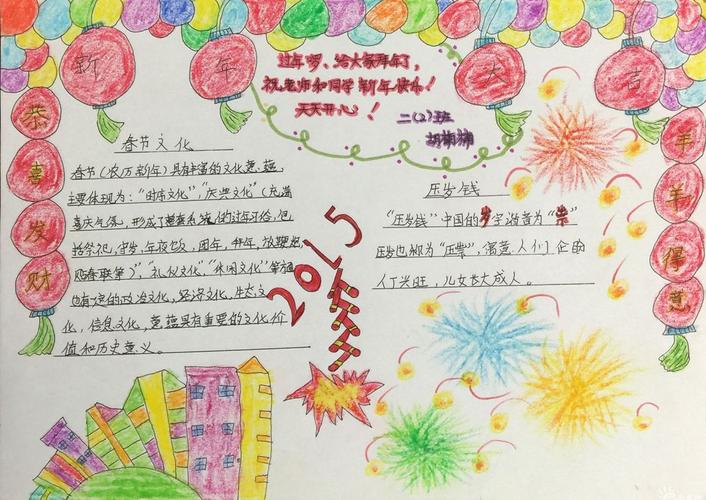 新年大吉
过年啰、给大家拜年了,
祝老师和同学新年快乐!
天天开心!
二(2)班
恭喜发财
羊羊得意
春节文化
春节(农历新年)具有丰富的文化意蕴,
主要体现为:“时序文化”,“庆典文化”(充满
喜庆气氛,形成了系统的过年习俗,包
括祭祀,守岁,年夜饭,团年,拜年,放鞭炮
贴春联等)“,“礼仪文化”,“休闲文化”等方面
也有一定的政治文化,经济文化,生态文
化,信息文化,意蕴具有重要的文化价
值和历史意义。
2015
压岁钱
“压岁钱”中国的岁字谐音为“祟”
压岁也称为“压祟”,寓意人们企盼
人丁兴旺,儿女长大成人。